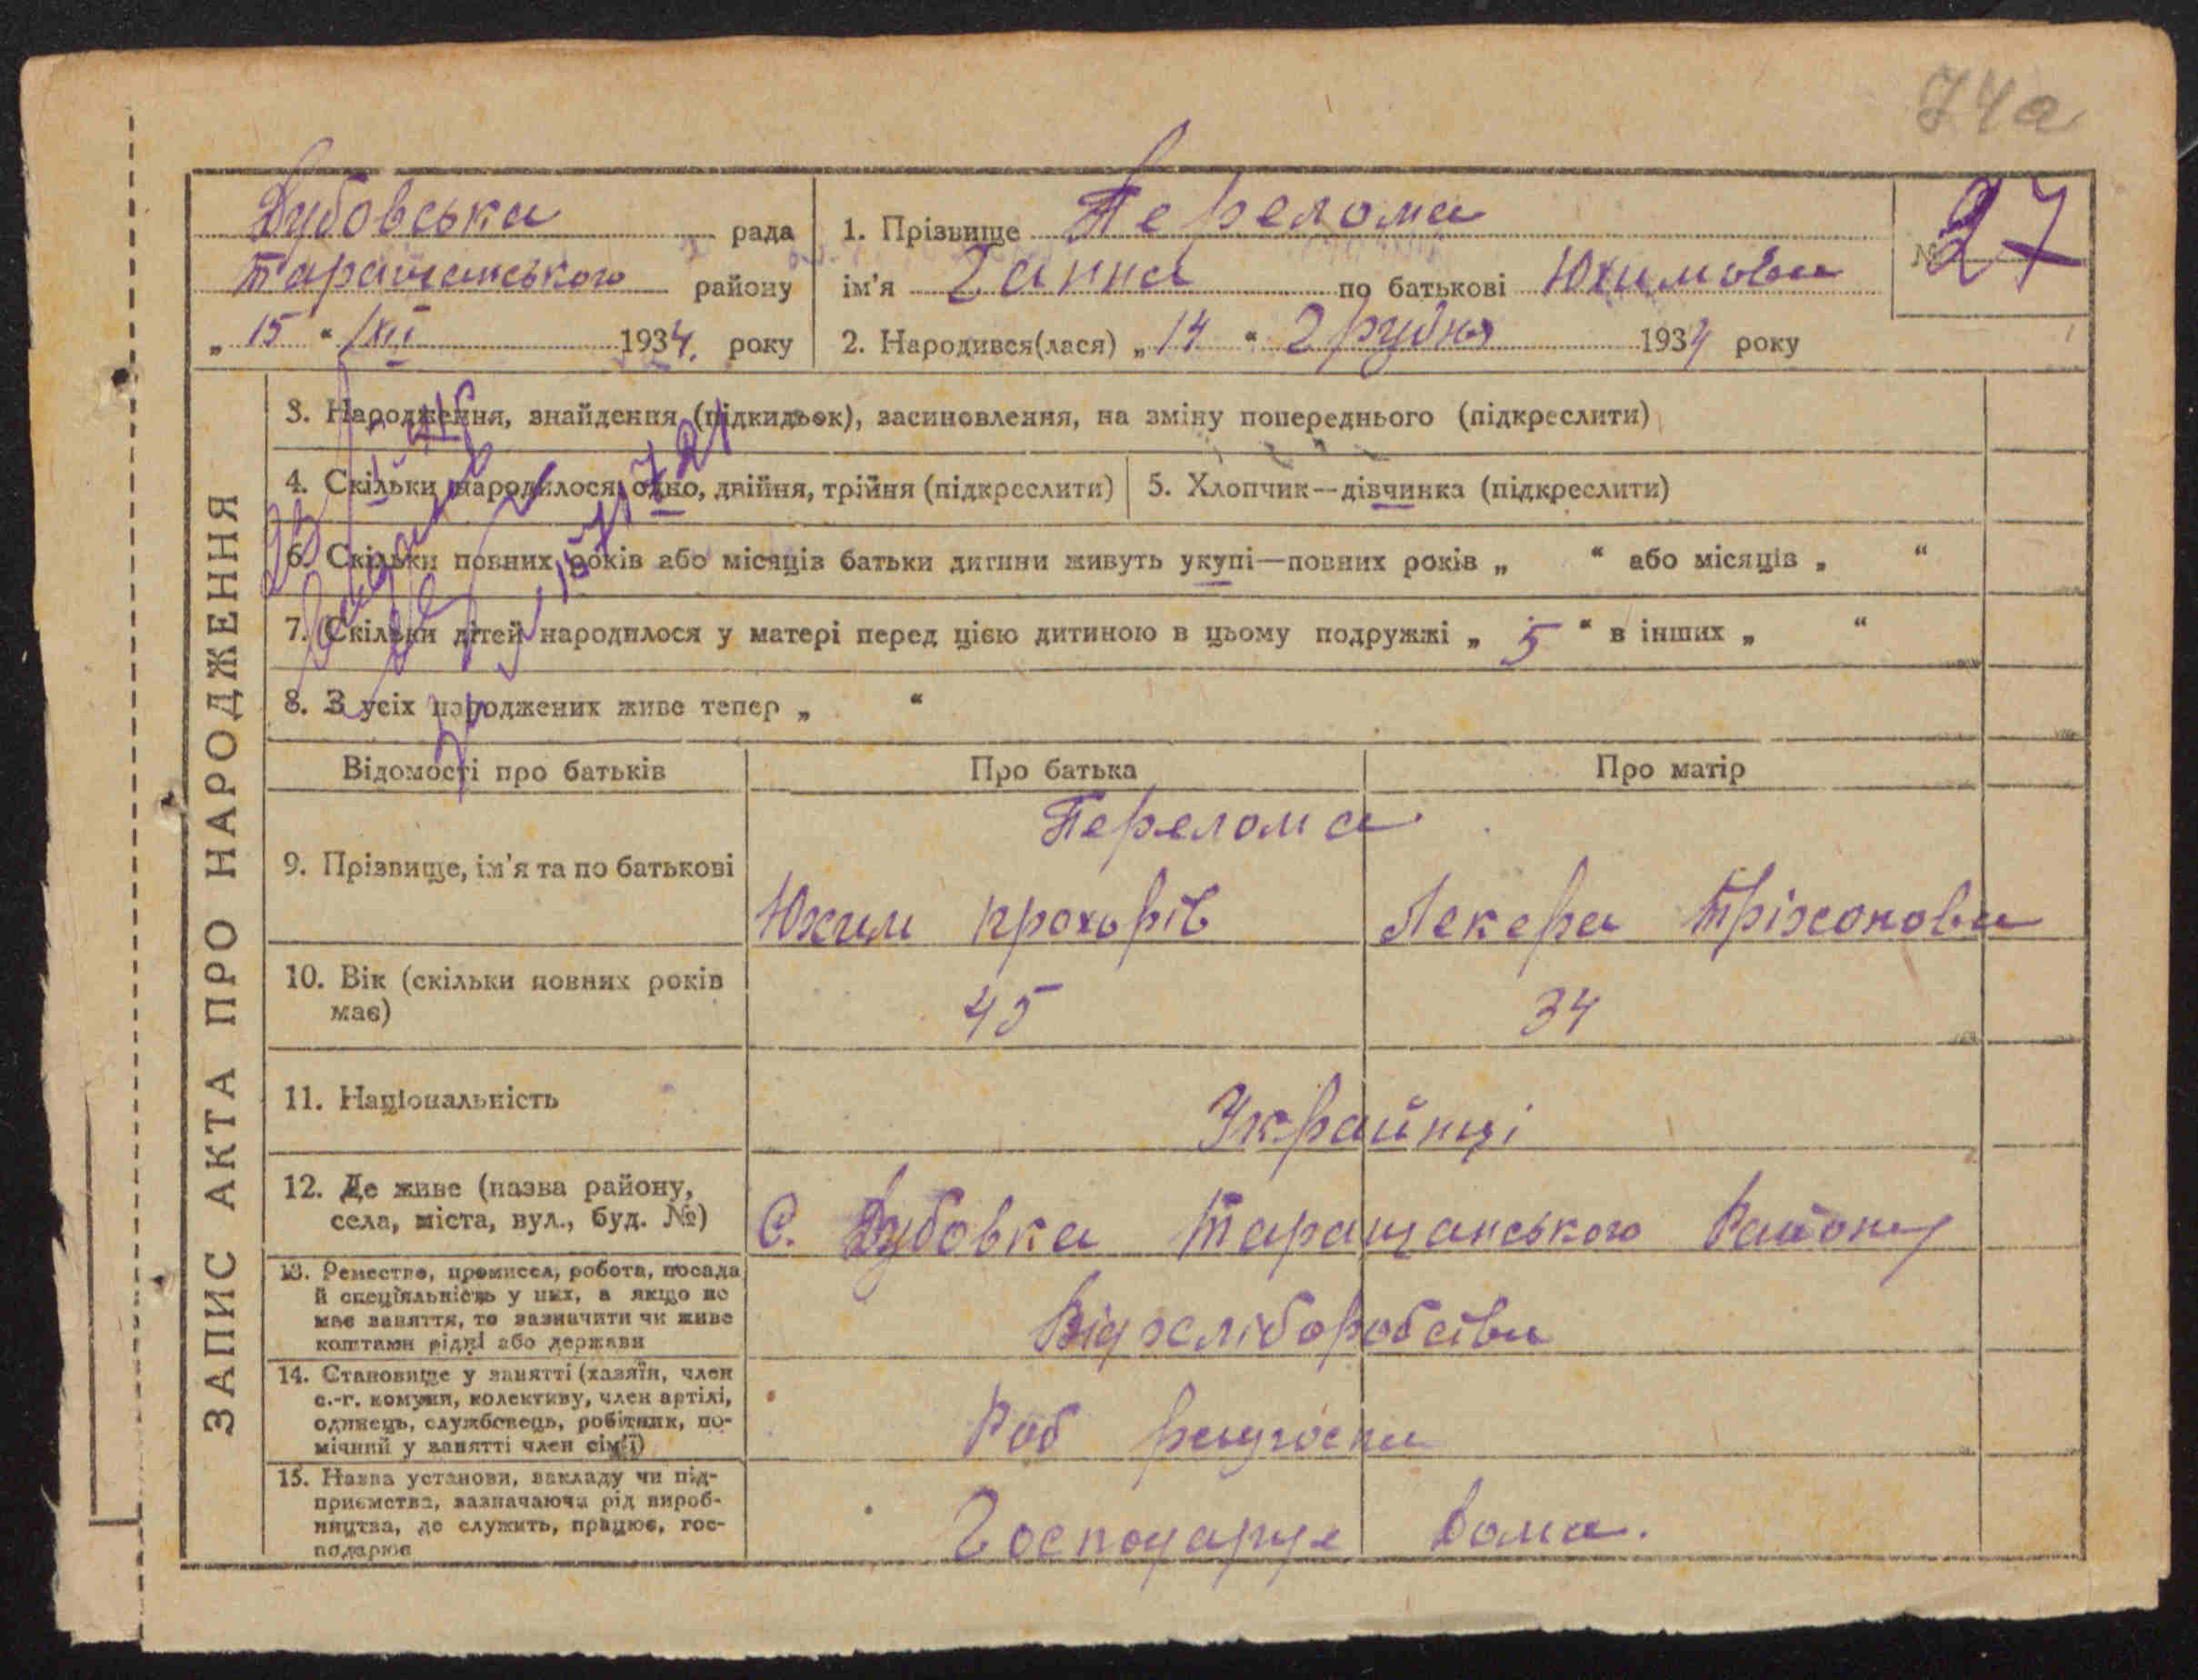 74а
Дубовська рада
Таращанського району
„ 15 “ /XII 1934. року
1. Прізвище Перелома
ім'я Ганна по батькові Юхимова
2. Народився(лася) „ 14 “ Грудня 1934 року
№ 27
ЗАПИС АКТА ПРО НАРОДЖЕННЯ
3. Народження, знайдення (підкидьок), засиновлення, на зміну попереднього (підкреслити)
4. Скільки народилося: одно, двійня, трійня (підкреслити)
5. Хлопчик—дівчинка (підкреслити)
6. Скільки повних років або місяців батьки дитини живуть укупі—повних років „ “ або місяців „ “
7. Скільки дітей народилося у матері перед цією дитиною в цьому подружжі „ 5 “ в інших „ “
8. З усіх народжених живе тепер „ “
Відомості про батьків
Про батька
Про матір
9. Прізвище, ім'я та по батькові
Перелома
Юхим Прохорів
Лекера Тріхонова
10. Вік (скільки повних років
має)
45
34
11. Національність
Українці
12. Де живе (назва району,
села, міста, вул., буд. №)
С. Дубовка Таращанського Району
13. Ремество, промисел, робота, посада
й спеціяльність у них, а якщо не
має заняття, то зазначити чи живе
коштами рідні або держави
Від хліборобства
14. Становище у занятті (хазяїн, член
с.-г. комуни, колективу, член артілі,
одинець, службовець, робітник, по-
мічний у занятті член сім'ї)
Роб
15. Назва установи, закладу чи під-
приємства, зазначаючи рід вироб-
ництва, де служить, працює, гос-
подарює
Господарує Дома.